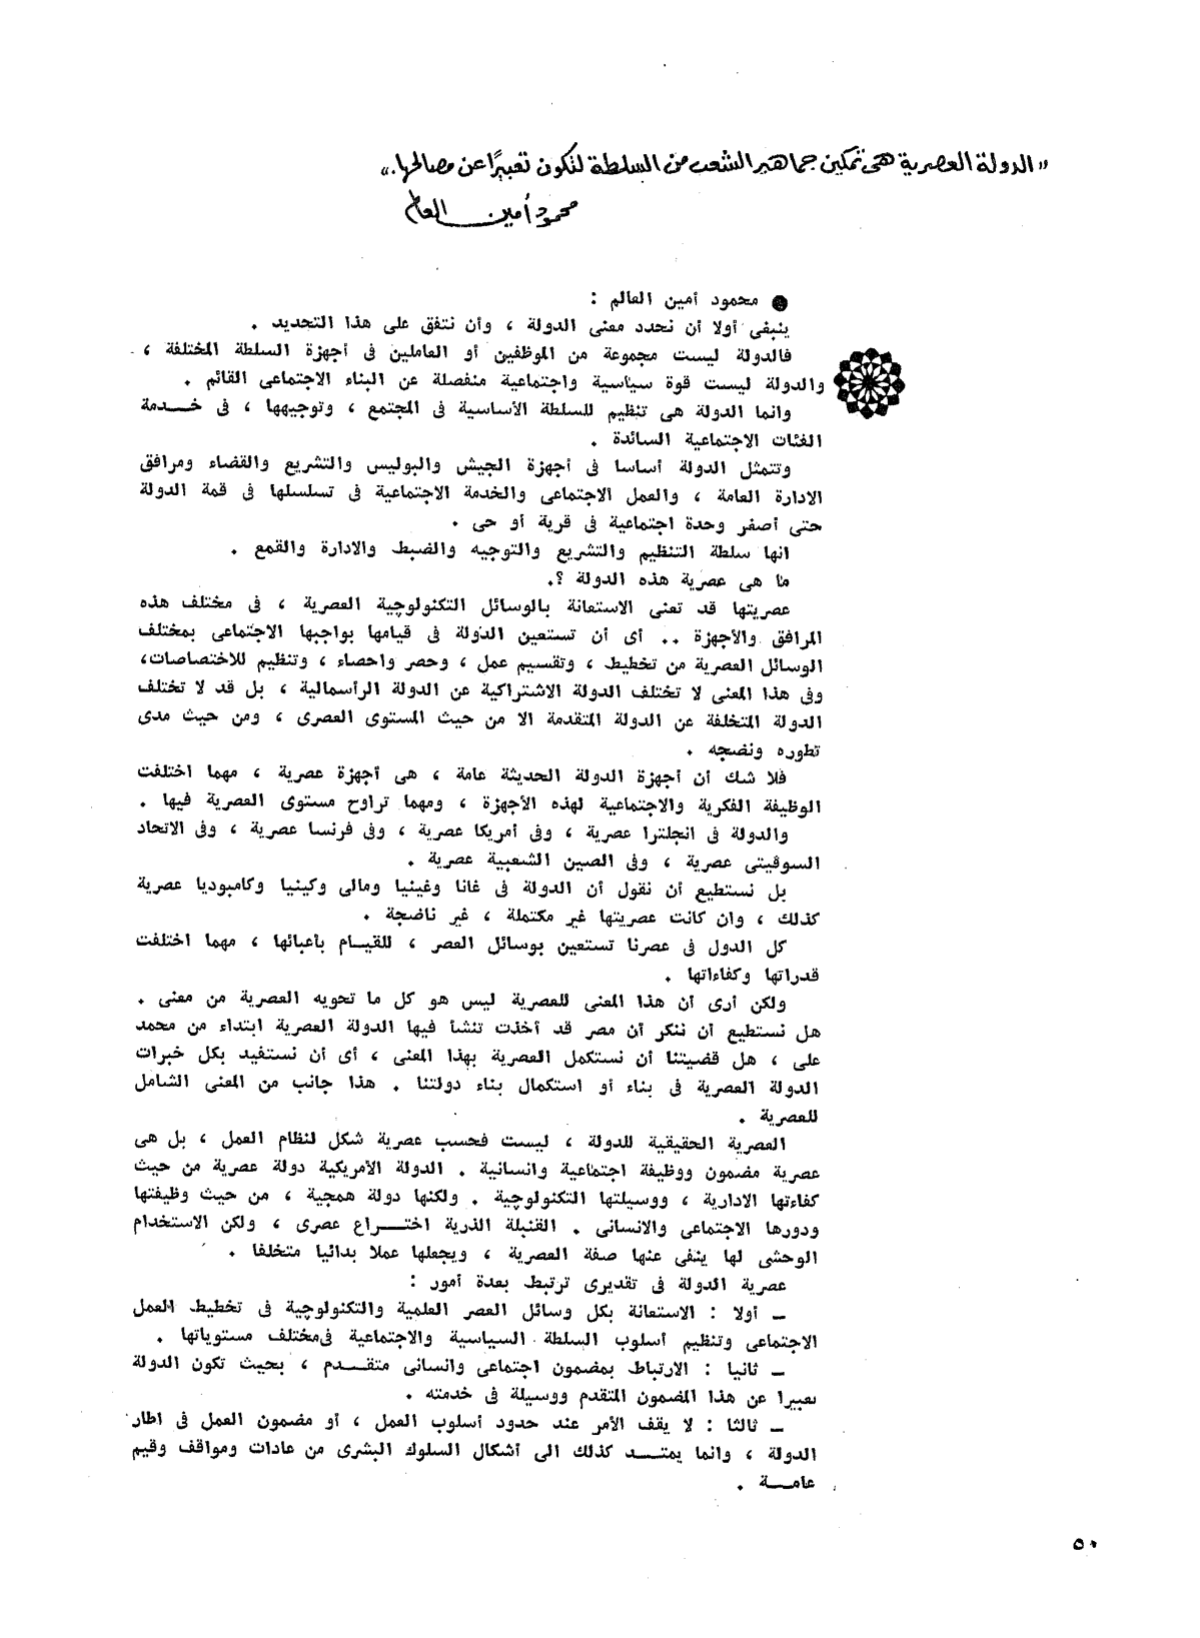 « الدولة العصرية هى تمكين جماهير الشعب من السلطة لتكون تعبيرًا عن مصالحها. »
محمود أمين العالم
● محمود أمين العالم :
ينبغى أولا أن نحدد معنى الدولة ، وأن نتفق على هذا التحديد .
فالدولة ليست مجموعة من الموظفين أو العاملين فى أجهزة السلطة المختلفة ،
والدولة ليست قوة سياسية واجتماعية منفصلة عن البناء الاجتماعى القائم .
وانما الدولة هى تنظيم للسلطة الأساسية فى المجتمع ، وتوجيهها ، فى خـــدمة
الفئات الاجتماعية السائدة .
وتتمثل الدولة أساسا فى أجهزة الجيش والبوليس والتشريع والقضاء ومرافق
الادارة العامة ، والعمل الاجتماعى والخدمة الاجتماعية فى تسلسلها فى قمة الدولة
حتى أصغر وحدة اجتماعية فى قرية أو حى .
انها سلطة التنظيم والتشريع والتوجيه والضبط والادارة والقمع .
ما هى عصرية هذه الدولة ؟.
عصريتها قد تعنى الاستعانة بالوسائل التكنولوچية العصرية ، فى مختلف هذه
المرافق والأجهزة .. أى أن تستعين الدولة فى قيامها بواجبها الاجتماعى بمختلف
الوسائل العصرية من تخطيط ، وتقسيم عمل ، وحصر واحصاء ، وتنظيم للاختصاصات،
وفى هذا المعنى لا تختلف الدولة الاشتراكية عن الدولة الرأسمالية ، بل قد لا تختلف
الدولة المتخلفة عن الدولة المتقدمة الا من حيث المستوى العصرى ، ومن حيث مدى
تطوره ونضجه .
فلا شك أن أجهزة الدولة الحديثة عامة ، هى أجهزة عصرية ، مهما اختلفت
الوظيفة الفكرية والاجتماعية لهذه الأجهزة ، ومهما تراوح مستوى العصرية فيها .
والدولة فى انجلترا عصرية ، وفى أمريكا عصرية ، وفى فرنسا عصرية ، وفى الاتحاد
السوڤيتى عصرية ، وفى الصين الشعبية عصرية .
بل نستطيع أن نقول أن الدولة فى غانا وغينيا ومالى وكينيا وكامبوديا عصرية
كذلك ، وان كانت عصريتها غير مكتملة ، غير ناضجة .
كل الدول فى عصرنا تستعين بوسائل العصر ، للقيــام بأعبائها ، مهما اختلفت
قدراتها وكفاءاتها .
ولكن أرى أن هذا المعنى للعصرية ليس هو كل ما تحويه العصرية من معنى .
هل نستطيع أن ننكر أن مصر قد أخذت تنشأ فيها الدولة العصرية ابتداء من محمد
على ، هل قضيتنا أن نستكمل العصرية بهذا المعنى ، أى أن نستفيد بكل خبرات
الدولة العصرية فى بناء أو استكمال بناء دولتنا . هذا جانب من المعنى الشامل
للعصرية .
العصرية الحقيقية للدولة ، ليست فحسب عصرية شكل لنظام العمل ، بل هى
عصرية مضمون ووظيفة اجتماعية وانسانية . الدولة الأمريكية دولة عصرية من حيث
كفاءتها الادارية ، ووسيلتها التكنولوچية . ولكنها دولة همجية ، من حيث وظيفتها
ودورها الاجتماعى والانسانى . القنبلة الذرية اختـــراع عصرى ، ولكن الاستخدام
الوحشى لها ينفى عنها صفة العصرية ، ويجعلها عملا بدائيا متخلفا .
عصرية الدولة فى تقديرى ترتبط بعدة أمور :
ــ أولا : الاستعانة بكل وسائل العصر العلمية والتكنولوچية فى تخطيط العمل
الاجتماعى وتنظيم أسلوب السلطة السياسية والاجتماعية فى مختلف مستوياتها .
ــ ثانيا : الارتباط بمضمون اجتماعى وانسانى متقــدم ، بحيث تكون الدولة
تعبيرا عن هذا المضمون المتقدم ووسيلة فى خدمته .
ــ ثالثا : لا يقف الأمر عند حدود أسلوب العمل ، أو مضمون العمل فى اطار
الدولة ، وانما يمتـــد كذلك الى أشكال السلوك البشرى من عادات ومواقف وقيم
عامــة .
٥٠